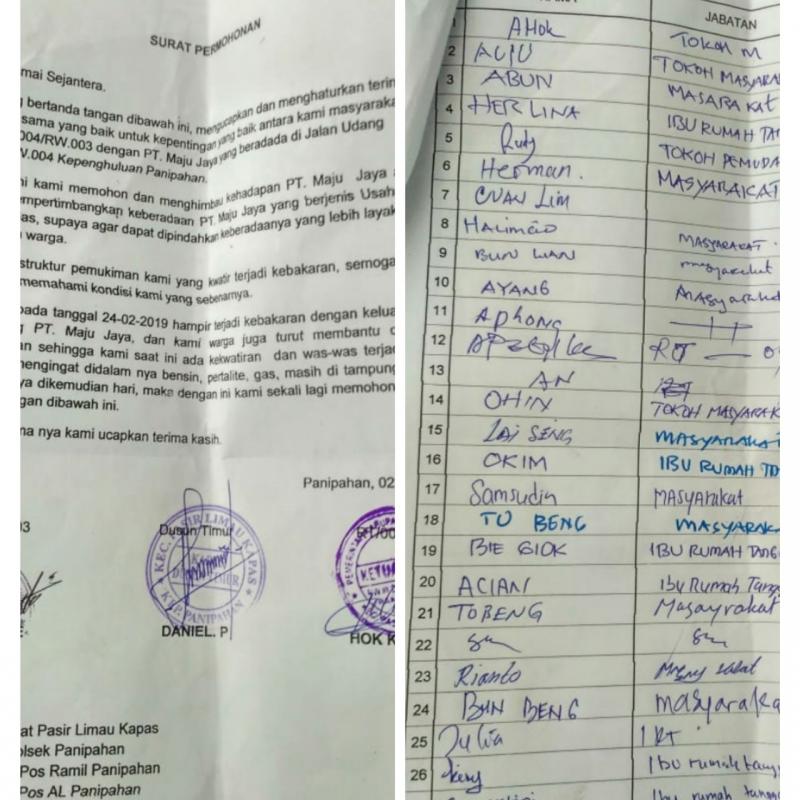 SURAT PERMOHONAN
mai Sejantera.
bertanda tangan dibawah ini, mengucapkan dan menghaturkan terin
sama yang baik untuk kepentingan yang baik antara kami masyaraka
004/RW.003 dengan PT. Maju Jaya yang beradada di Jalan Udang
V.004 Kepenghuluan Panipahan.
ni kami memohon dan menghimbau kehadapan PT. Maju Jaya
mpertimbangkan keberadaan PT. Maju Jaya yang berjenis Usah
as, supaya agar dapat dipindahkan keberadaanya yang lebih layak
warga.
struktur pemukiman kami yang kwatir terjadi kebakaran, semoga
memahami kondisi kami yang sebenarnya.
pada tanggal 24-02-2019 hampir terjadi kebakaran dengan kelua
PT. Maju Jaya, dan kami warga juga turut membantu
an sehingga kami saat ini ada kekwatiran dan was-was terjad
mengingat didalam nya bensin, pertalite, gas, masih di tampung
ya dikemudian hari, maka dengan ini kami sekali lagi memohon
gan dibawah ini.
na nya kami ucapkan terima kasih.
Panipahan, 02
03
Dusun Timur
RT/00
KEC. PASIR LIMAU KAPAS
KEP. PANIPAHAN
KETUA
DANIEL. P
HOK K
at Pasir Limau Kapas
olsek Panipahan
Pos Ramil Panipahan
Pos AL Panipahan
JABATAN
1 AHok TOKOH M
2 ACIU TOKOH MASYARAK
3 ABUN MASARAKAT
4 HERLINA IBU RUMAH TAN
5 Rudy TOKOH PEMUDA
6 Herman. MASYARAIKAT
7 CUAN Lim
8 HALIMAO MASYARAKAT.
9 BUN WAN masyarakat
10 AYANG MASyaraka
11 APhong
12 RT
13 AN
14 OHIN TOKOH MASYARAK
15 LAI SENG MASYARAKAT
16 OKIM IBU RUMAH TA
17 Samsudin MASYArakat
18 TO BENG MASYARAK
19 BIE GIOK IBU RUMAH TANG
20 ACIAN Ibu Rumah Tangg
21 TOBENG Masayrakat
22
23 Rianto
24 BUN BENG masyaraka
25 Julia IRT
26 Ibu rumah tangg
Ibu rumah tangga